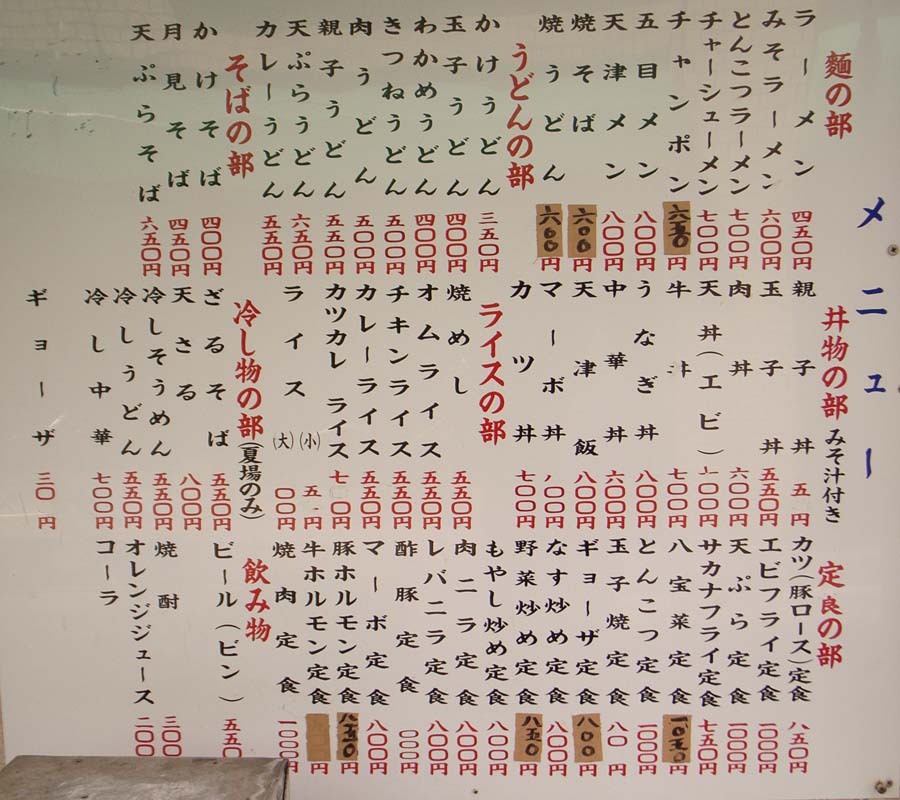 メニュー
麺の部
ラーメン 四五〇円
みそラーメン 六〇〇円
とんこつラーメン 七〇〇円
チャーシューメン 七〇〇円
チャンポン 六五〇円
五目メン 八〇〇円
天津メン 八〇〇円
焼そば 六〇〇円
焼うどん 六〇〇円
うどんの部
かけうどん 三五〇円
玉子うどん 四〇〇円
わかめうどん 四〇〇円
きつねうどん 五〇〇円
肉うどん 五〇〇円
親子うどん 五五〇円
天ぷらうどん 六五〇円
カレーうどん 五五〇円
そばの部
かけそば 四〇〇円
月見そば 四五〇円
天ぷらそば 六五〇円
丼物の部 みそ汁付き
親子丼 五 円
玉子丼 五五〇円
肉丼 六〇〇円
天丼(エビ) 〇〇円
牛丼 七〇〇円
うなぎ丼 八〇〇円
中華丼 六〇〇円
天津飯 八〇〇円
マーボ丼 〇〇円
カツ丼 七〇〇円
ライスの部
焼めし 五五〇円
オムライス 五五〇円
チキンライス 五五〇円
カレーライス 五五〇円
カツカレライス 七 円
ライス(小) 五 円
(大) 〇〇円
冷し物の部(夏場のみ)
ざるそば 五五〇円
天ざる 八〇〇円
冷しそうめん 五五〇円
冷しうどん 五五〇円
冷し中華 七〇〇円
ギョーザ 三〇 円
定良の部
カツ(豚ロース)定食 八五〇円
エビフライ定食 一〇〇〇円
天ぷら定食 一〇〇〇円
サカナフライ定食 七五〇円
八宝菜定食 一〇五〇円
とんこつ定食 一〇〇〇円
玉子焼定食 八〇 円
ギョーザ定食 八〇〇円
なす炒め定食 八〇〇円
野菜炒め定食 八五〇円
もやし炒め定食 八〇〇円
肉ニラ定食 八〇〇円
レバニラ定食 八〇〇円
酢豚定食 〇〇〇円
マーボ定食 八〇〇円
豚ホルモン定食 八五〇円
牛ホルモン定食 円
焼肉定食 一〇〇〇円
飲み物
ビール(ビン) 五五〇
焼酎 三〇〇
オレンジジュース 二〇〇
コーラ